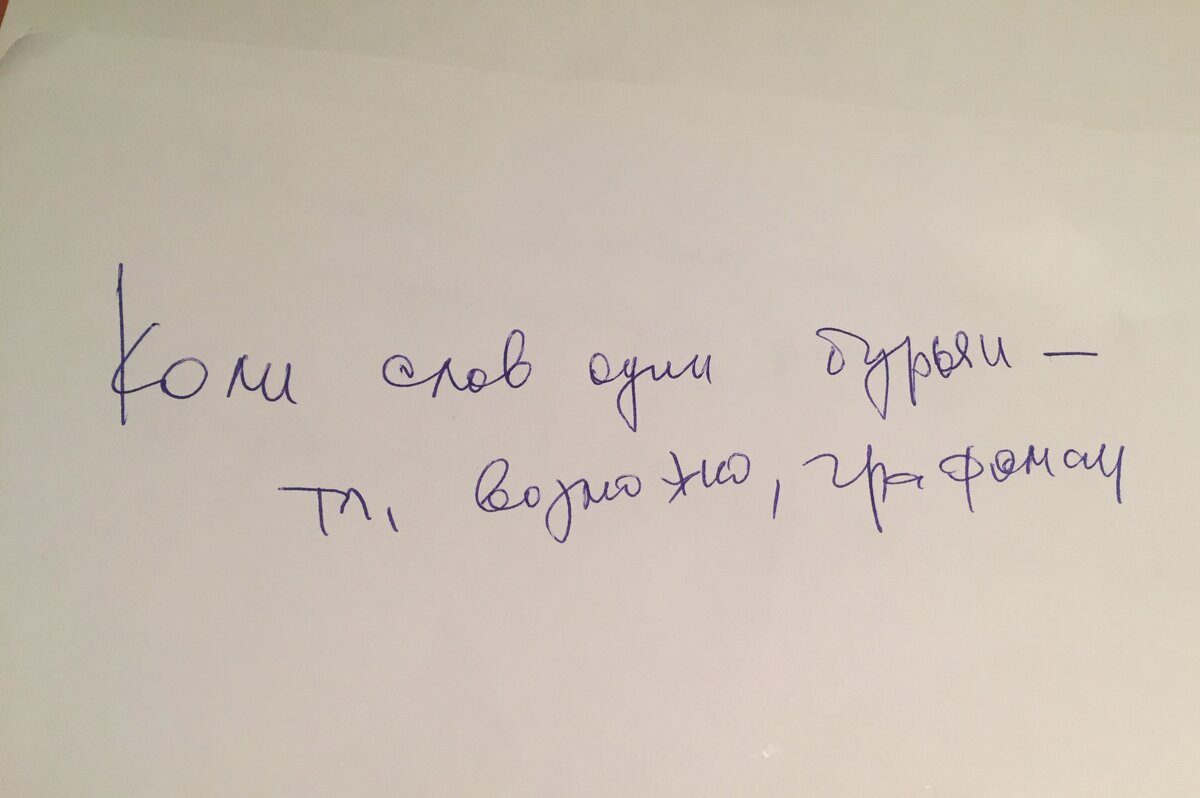 Коли слов один бурьян —
ты, возможно, графоман